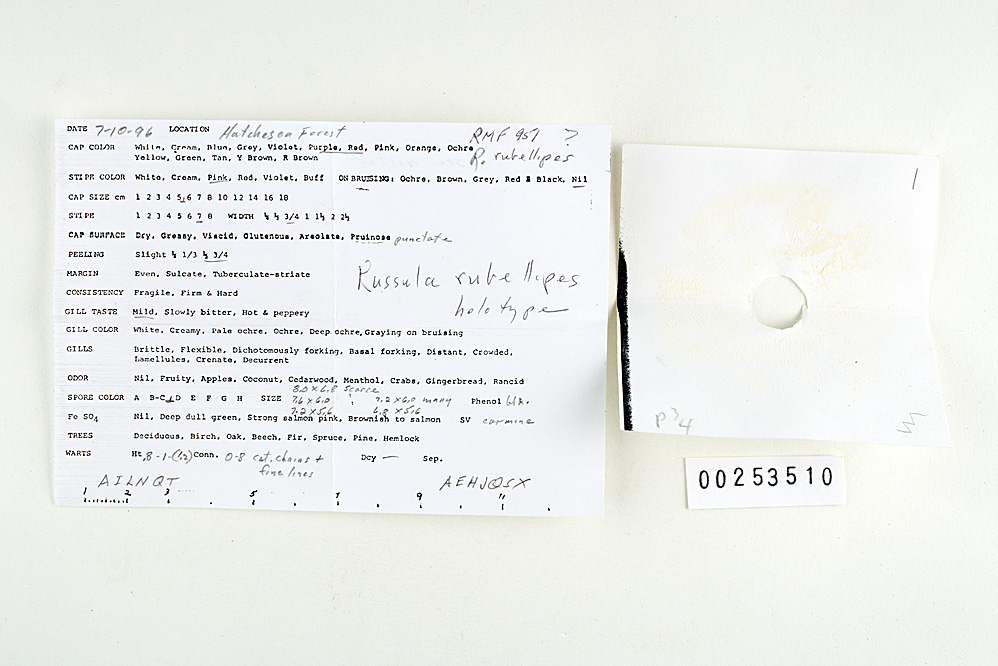 DATE 7-10-96 LOCATION Hutcheson Forest RMF 957 ?
CAP COLOR White, Cream, Blue, Grey, Violet, Purple, Red, Pink, Orange, Ochre
Yellow, Green, Tan, Y Brown, R Brown R. rubellipes
STIPE COLOR White, Cream, Pink, Red, Violet, Buff ON BRUISING: Ochre, Brown, Grey, Red & Black, Nil
CAP SIZE cm 1 2 3 4 5 6 7 8 10 12 14 16 18
STIPE 1 2 3 4 5 6 7 8 WIDTH ¼ ½ 3/4 1 1½ 2 2½
CAP SURFACE Dry, Greasy, Viscid, Glutenous, Areolate, Pruinose punctate
PEELING Slight ¼ 1/3 ½ 3/4
MARGIN Even, Sulcate, Tuberculate-striate
Russula rubellipes
holotype
CONSISTENCY Fragile, Firm & Hard
GILL TASTE Mild, Slowly bitter, Hot & peppery
GILL COLOR White, Creamy, Pale ochre, Ochre, Deep ochre, Graying on bruising
GILLS Brittle, Flexible, Dichotomously forking, Basal forking, Distant, Crowded,
Lamellules, Crenate, Decurrent
ODOR Nil, Fruity, Apples, Coconut, Cedarwood, Menthol, Crabs, Gingerbread, Rancid
8.0 x 6.8 scarce
SPORE COLOR A B-C D E F G H SIZE 7.6 x 6.0 7.2 x 6.0 many Phenol blk.
7.2 x 5.6 6.8 x 5.6
Fe SO4 Nil, Deep dull green, Strong salmon pink, Brownish to salmon SV carmine
TREES Deciduous, Birch, Oak, Beech, Fir, Spruce, Pine, Hemlock
WARTS Ht .8-1-(1.2) Conn. 0-8 cat, chains + Dcy — Sep.
fine lines
AILNQT AEHJQSX
1 2 3 5 7 9 11
1
P 3/4
00253510